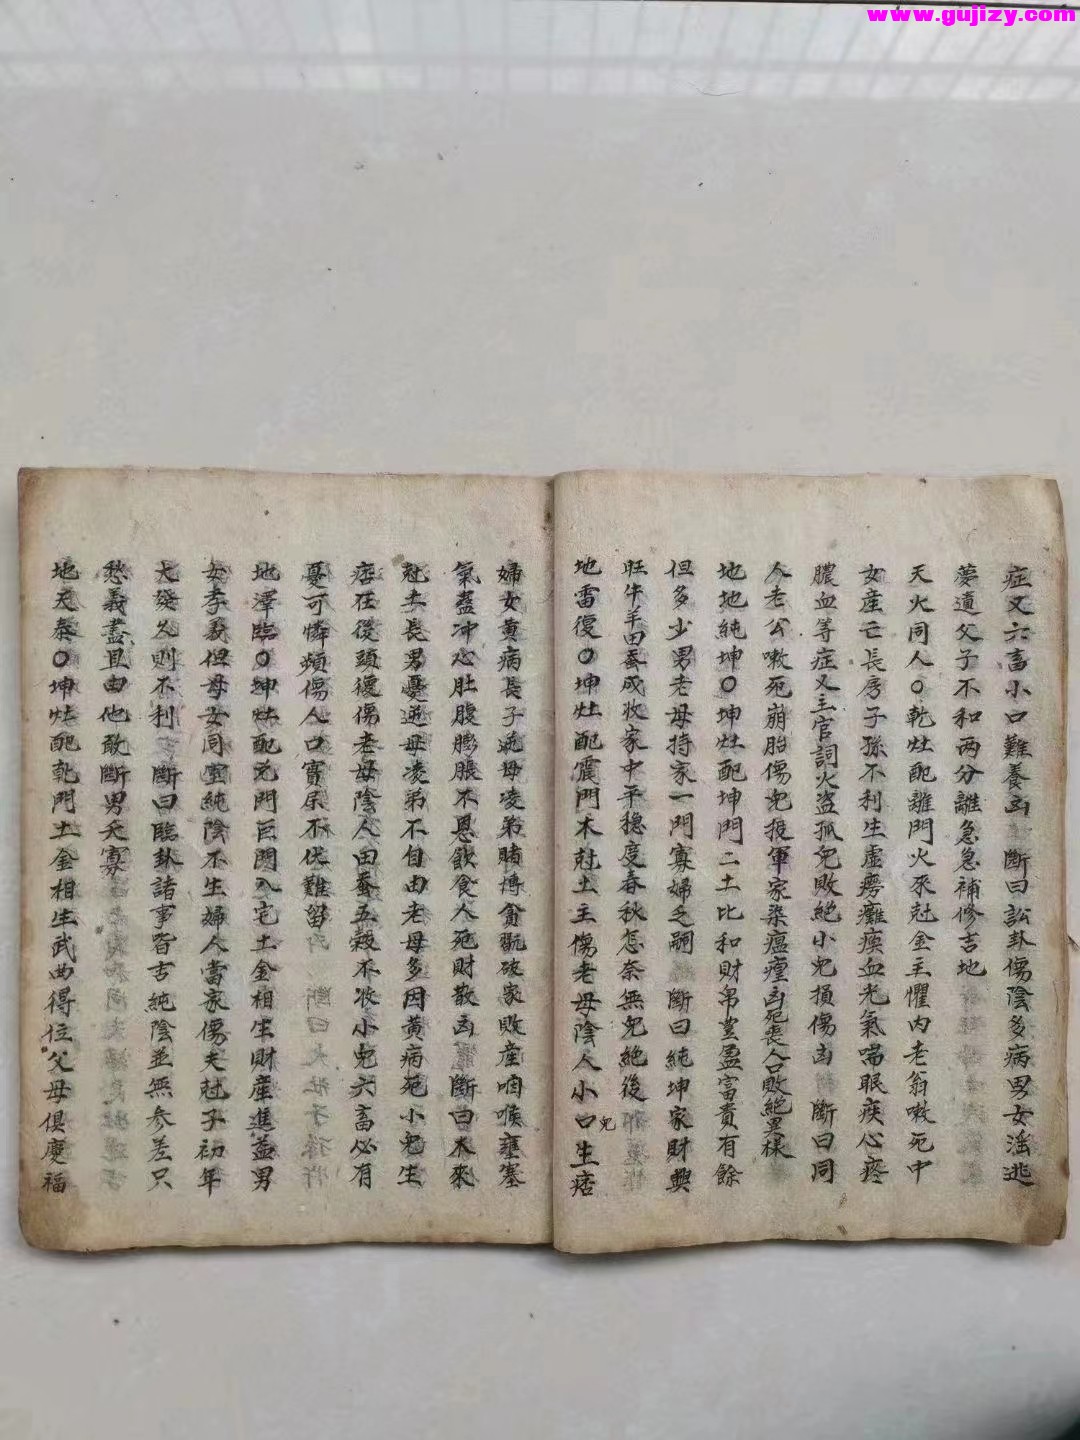 www.gujizy.com
症又六畜小口難養凶 斷曰訟卦傷陰多病男女滛逃
夢遺父子不和两分離急急補修吉地
天火同人〇乾灶配離門火來尅金主懼内老翁嗽死中
女産亡長房子孫不利生虚癆癱瘓血光氣喘眼疾心疼
膿血等症又主官詞火盗孤兒敗絶小兒損傷凶 斷曰同
人老公嗽死崩胎傷兒投軍家染瘟瘽凶死喪人口敗絶異樣
地地純坤〇坤灶配坤門二土比和財帛豊盈富貴有餘
但多少男老母持家一門寡婦乏嗣 斷曰純坤家財興
旺牛羊田蚕成收家中平穏度春秋怎奈無兒絶後
地雷復〇坤灶配震門木尅土主傷老母陰人小口兒生痞
婦女黄病長子逆母凌弟賭博貪翫破家敗産咽喉壅塞
氣蠱冲心肚腹膨脹不思飲食人死財散凶 斷曰木來
尅土長男憂逆母凌弟不自由老母多因黄病死小兒生
痞在後頭復傷老母陰人田蚕五穀不收小兒六畜必有
憂可憐頻傷人口實臥不伏難留
地澤臨〇坤灶配兌門巨門入宅土金相生財産進益男
女孝義但母女同室純陰不生婦人當家傷夫尅子初年
大發久則不利 斷曰臨卦諸事皆吉純陰並無参差只
愁義盡且由他敢斷男夭寡
地天泰〇坤灶配乾門土金相生武曲得位父母俱慶福